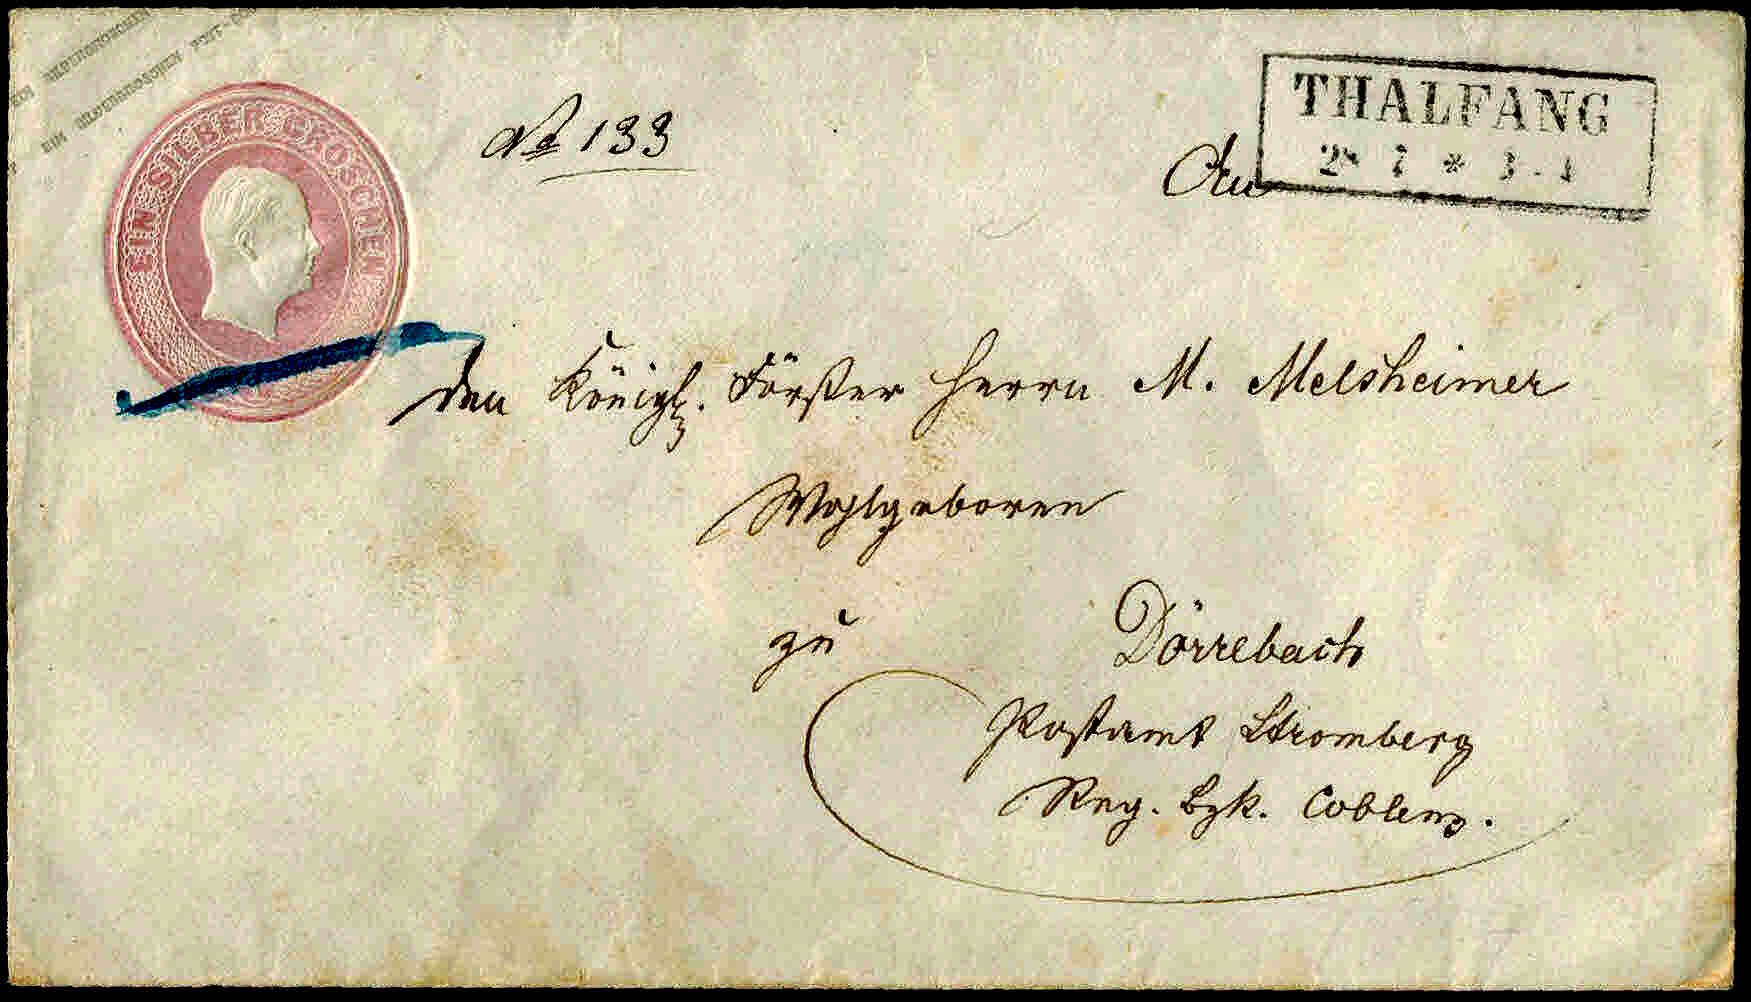 EIN SILBERGROSCHEN POST-COU
EIN SILBER GROSCHEN
THALFANG
№ 133
An
den Königl. Förster Herrn M. Melsheimer
Wohlgeboren
zu Dörrebach
Postamt Stromberg
Reg. Bzk. Coblenz.